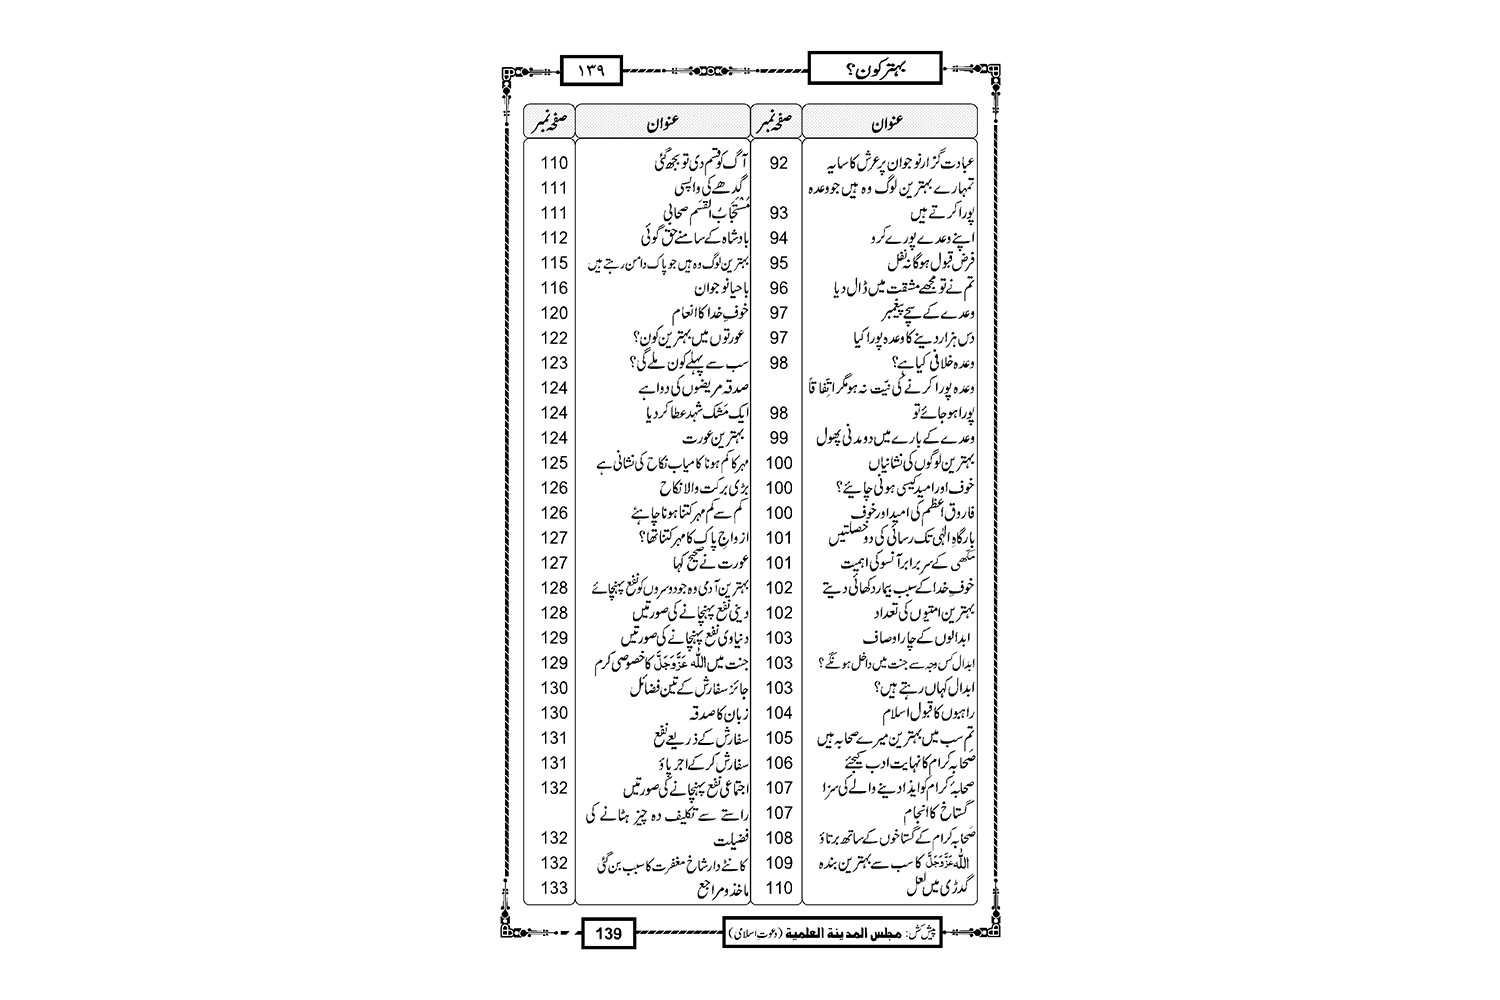 بہتر کون؟
۱۳۹
عنوان صفحہ نمبر عنوان صفحہ نمبر
عبادت گزار نوجوان پر عرش کا سایہ 92
تمہارے بہترین لوگ وہ ہیں جو وعدہ
پورا کرتے ہیں 93
اپنے وعدے پورے کرو 94
فرض قبول ہوگا نہ نفل 95
تم نے تو مجھے مشقت میں ڈال دیا 96
وعدے کے سچے پیغمبر 97
دس ہزار دینے کا وعدہ پورا کیا 97
وعدہ خلافی کیا ہے؟ 98
وعدہ پورا کرنے کی نیّت نہ ہو مگر اتِّفاقاً
پورا ہو جائے تو 98
وعدے کے بارے میں دو مدنی پھول 99
بہترین لوگوں کی نشانیاں 100
خوف اور امید کیسی ہونی چاہئے؟ 100
فاروق اعظم کی امید اور خوف 100
بارگاہِ الٰہی تک رسائی کی دو خصلتیں 101
مکّھی کے سر برابر آنسو کی اہمیت 101
خوفِ خدا کے سبب بیمار دکھائی دیتے 102
بہترین امتیوں کی تعداد 102
ابدالوں کے چار اوصاف 103
ابدال کس وجہ سے جنت میں داخل ہونگے؟ 103
ابدال کہاں رہتے ہیں؟ 103
راہبوں کا قبول اسلام 104
تم سب میں بہترین میرے صحابہ ہیں 105
صَحابہ کرام کا نہایت ادب کیجئے 106
صحابہ کرام کو ایذا دینے والے کی سزا 107
گستاخ کا انجام 107
صَحابہ کرام کے گستاخوں کے ساتھ برتاؤ 108
اللّٰہ عَزَّوَجَلَّ کا سب سے بہترین بندہ 109
گدڑی میں لعل 110
آگ کو قسم دی تو بجھ گئی 110
گدھے کی واپسی 111
مُسْتَجَابُ الْقَسَم صحابی 111
بادشاہ کے سامنے حق گوئی 112
بہترین لوگ وہ ہیں جو پاک دامن رہتے ہیں 115
باحیا نوجوان 116
خوفِ خدا کا انعام 120
عورتوں میں بہترین کون؟ 122
سب سے پہلے کون ملے گی؟ 123
صدقہ مریضوں کی دوا ہے 124
ایک مَشک شہد عطا کر دیا 124
بہترین عورت 124
مہر کا کم ہونا کامیاب نکاح کی نشانی ہے 125
بڑی برکت والا نکاح 126
کم سے کم مہر کتنا ہونا چاہئے 126
ازواجِ پاک کا مہر کتنا تھا؟ 127
عورت نے صحیح کہا 127
بہترین آدمی وہ جو دوسروں کو نفع پہنچائے 128
دینی نفع پہنچانے کی صورتیں 128
دنیاوی نفع پہنچانے کی صورتیں 129
جنت میں اللّٰہ عَزَّوَجَلَّ کا خصوصی کرم 129
جائز سفارش کے تین فضائل 130
زبان کا صدقہ 130
سفارش کے ذریعے نفع 131
سفارش کر کے اجر پاؤ 131
اجتماعی نفع پہنچانے کی صورتیں 132
راستے سے تکلیف دہ چیز ہٹانے کی
فضیلت 132
کانٹے دار شاخ مغفرت کا سبب بن گئی 132
ماخذ و مراجع 133
پیش کش: مجلس المدینة العلمیة (دعوتِ اسلامی)
139